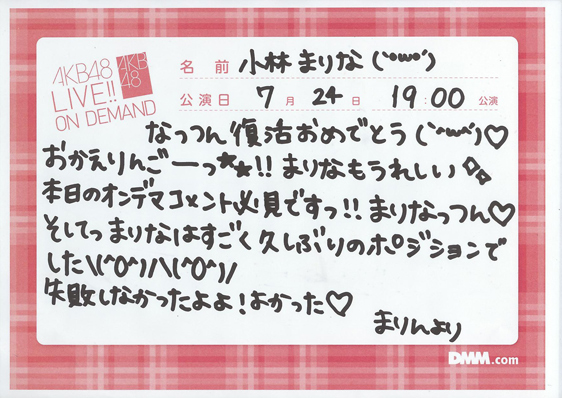 AKB48
LIVE!!
ON DEMAND
AKB
48
名 前 小林 まりな (`･ω･´)
公演日 7 月 24 日 19:00 公演
なっつん復活おめでとう (`･ω･´)♡
おかえりんごーっ★★!! まりなもうれしい✧
本日のオンデマコメント必見ですっ!! まりなっつん♡
そしてっまりなはすごく久しぶりのポジションで
した\(^O^)/\(^O^)/
失敗しなかったよよ!よかった♡
まりんより
DMM.com